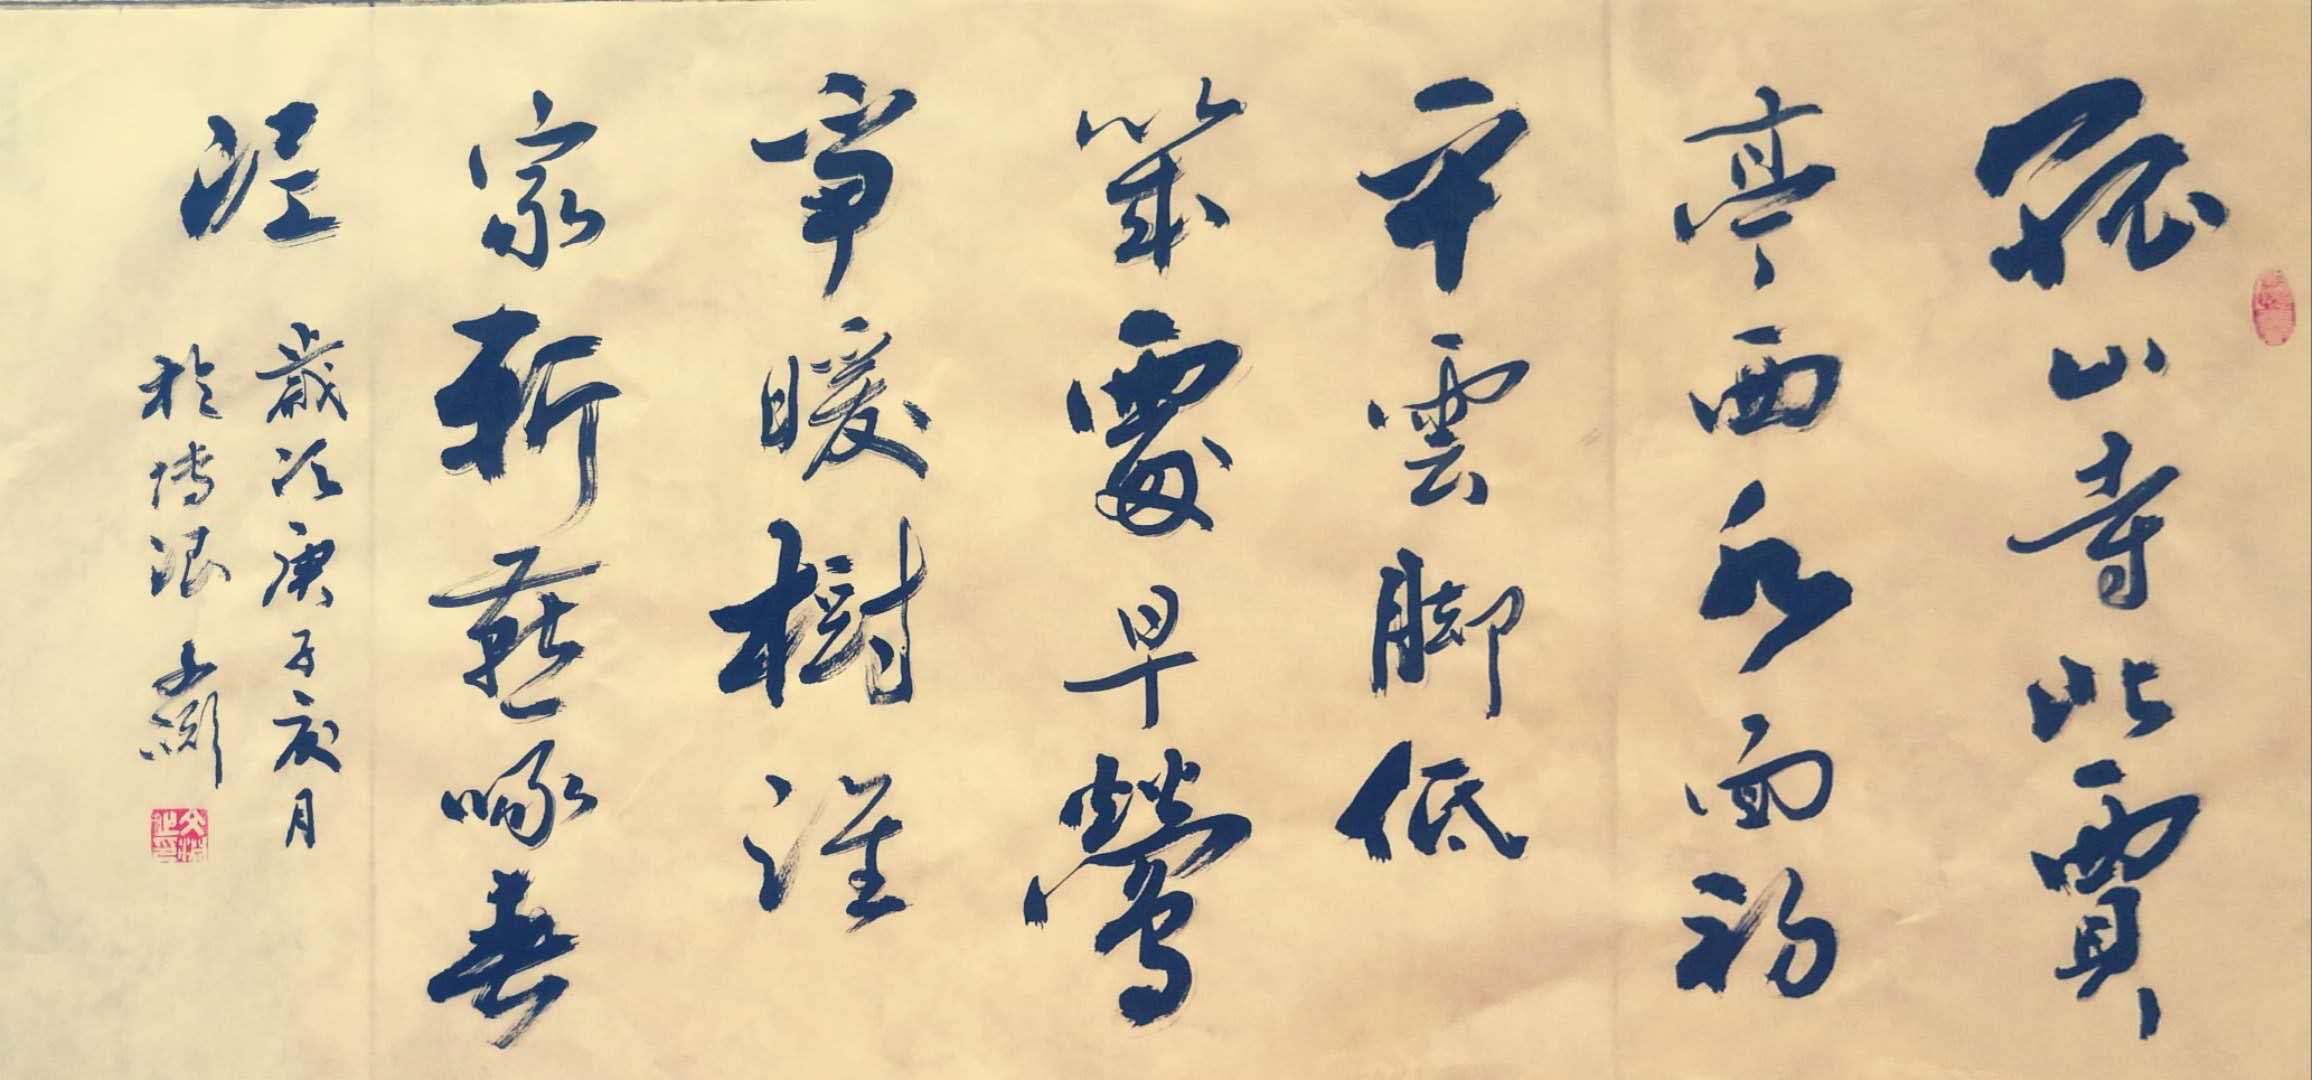 孤山寺北賈
亭西水面初
平雲脚低
幾處早鶯
爭暖樹誰
家新燕啄春
泥
歲次庚子夏月
於博浪